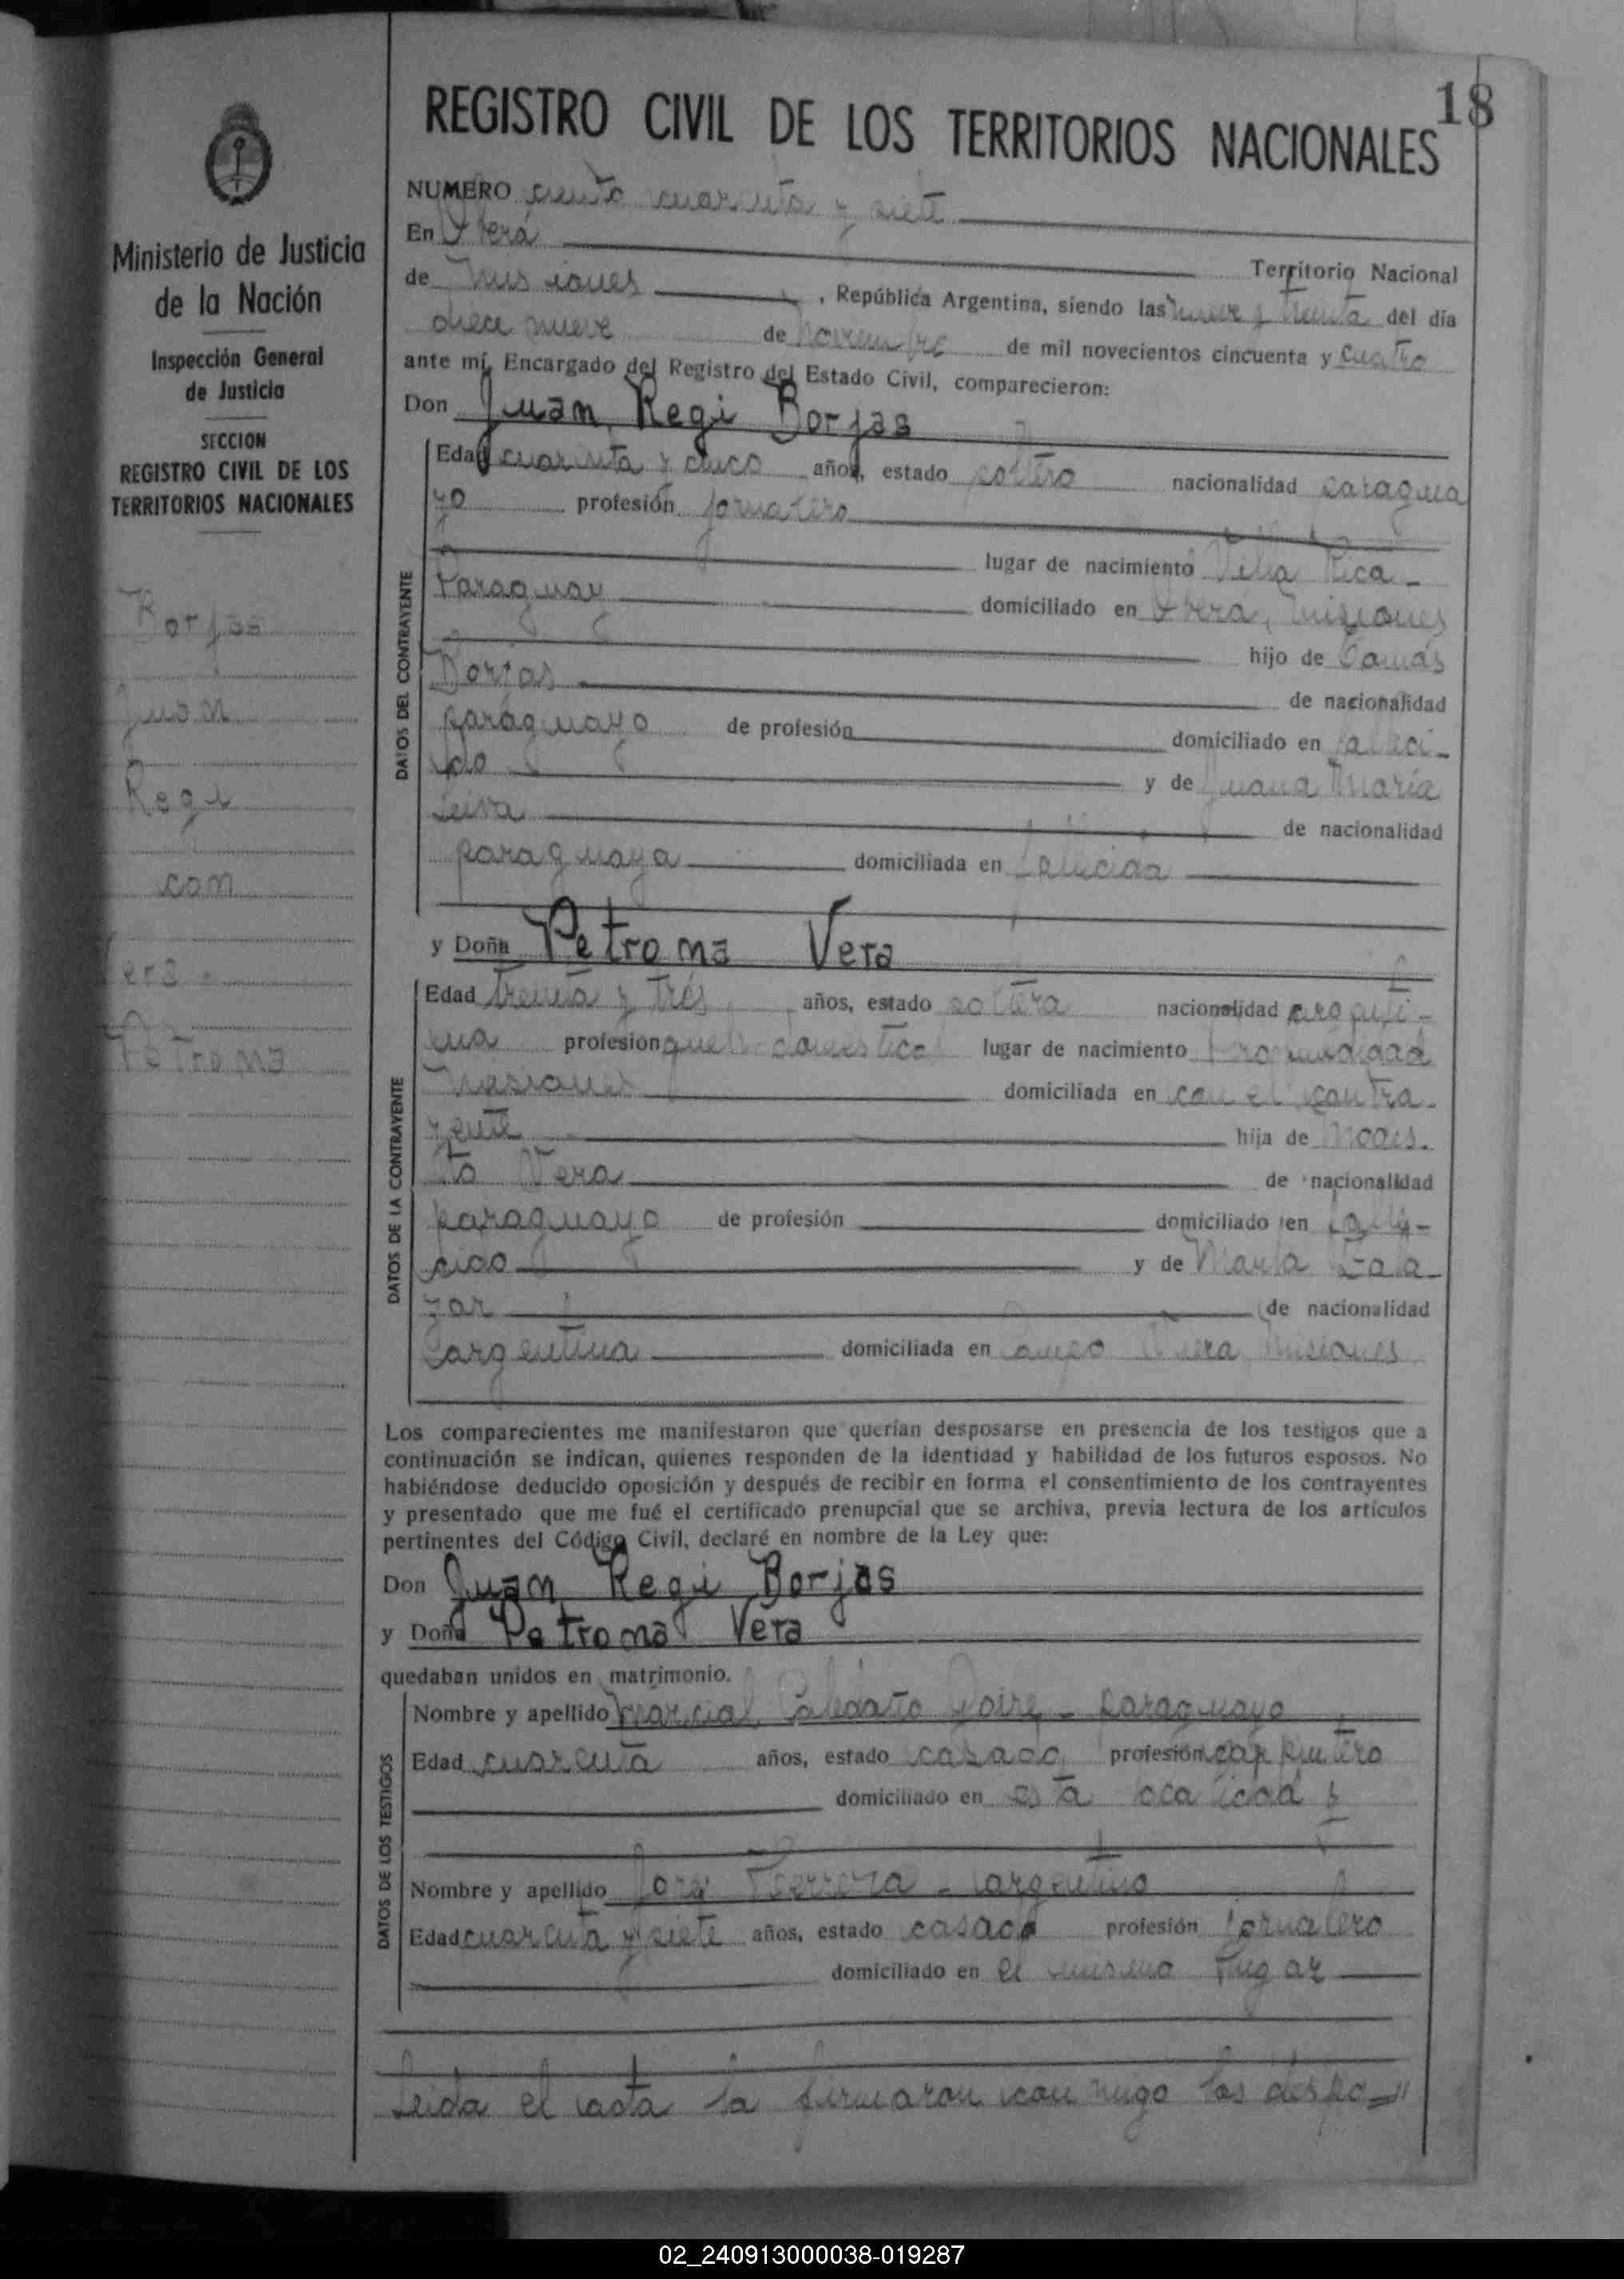 18
REGISTRO CIVIL DE LOS TERRITORIOS NACIONALES
Ministerio de Justicia
de la Nación
Inspección General
de Justicia
SECCION
REGISTRO CIVIL DE LOS
TERRITORIOS NACIONALES
Borjas
Juan
Regi
con
Vera
Petrona
NUMERO ciento cuarenta y siete
En Oberá Territorio Nacional
de Misiones, República Argentina, siendo las nueve y treinta del día
diecinueve de Noviembre de mil novecientos cincuenta y cuatro
ante mí, Encargado del Registro del Estado Civil, comparecieron:
Don Juan Regi Borjas
DATOS DEL CONTRAYENTE
Edad cuarenta y cinco años, estado soltero nacionalidad paragua
yo profesión jornalero
lugar de nacimiento Villa Rica -
Paraguay domiciliado en Oberá, Misiones
hijo de
Borjas de nacionalidad
paraguayo de profesión domiciliado en falleci-
do y de Juana María
Leiva de nacionalidad
paraguaya domiciliada en fallecida
y Doña Petrona Vera
DATOS DE LA CONTRAYENTE
Edad treinta y tres años, estado soltera nacionalidad argenti-
na profesión queh. domésticos lugar de nacimiento Profundidad
Misiones domiciliada en con el contra-
yente hija de Modes-
to Vera de nacionalidad
paraguayo de profesión domiciliado en falle-
cido y de María Sala-
zar de nacionalidad
argentina domiciliada en Campo Viera Misiones
Los comparecientes me manifestaron que querían desposarse en presencia de los testigos que a
continuación se indican, quienes responden de la identidad y habilidad de los futuros esposos. No
habiéndose deducido oposición y después de recibir en forma el consentimiento de los contrayentes
y presentado que me fué el certificado prenupcial que se archiva, previa lectura de los artículos
pertinentes del Código Civil, declaré en nombre de la Ley que:
Don Juan Regi Borjas
y Doña Petrona Vera
quedaban unidos en matrimonio.
DATOS DE LOS TESTIGOS
Nombre y apellido Marcial - paraguayo
Edad cuarenta años, estado casado profesión carpintero
domiciliado en esta localidad y
Nombre y apellido José Ferreira - argentino
Edad cuarenta y siete años, estado casado profesión jornalero
domiciliado en el mismo lugar
Leida el acta la firmaron con migo los despo="
02_240913000038-019287